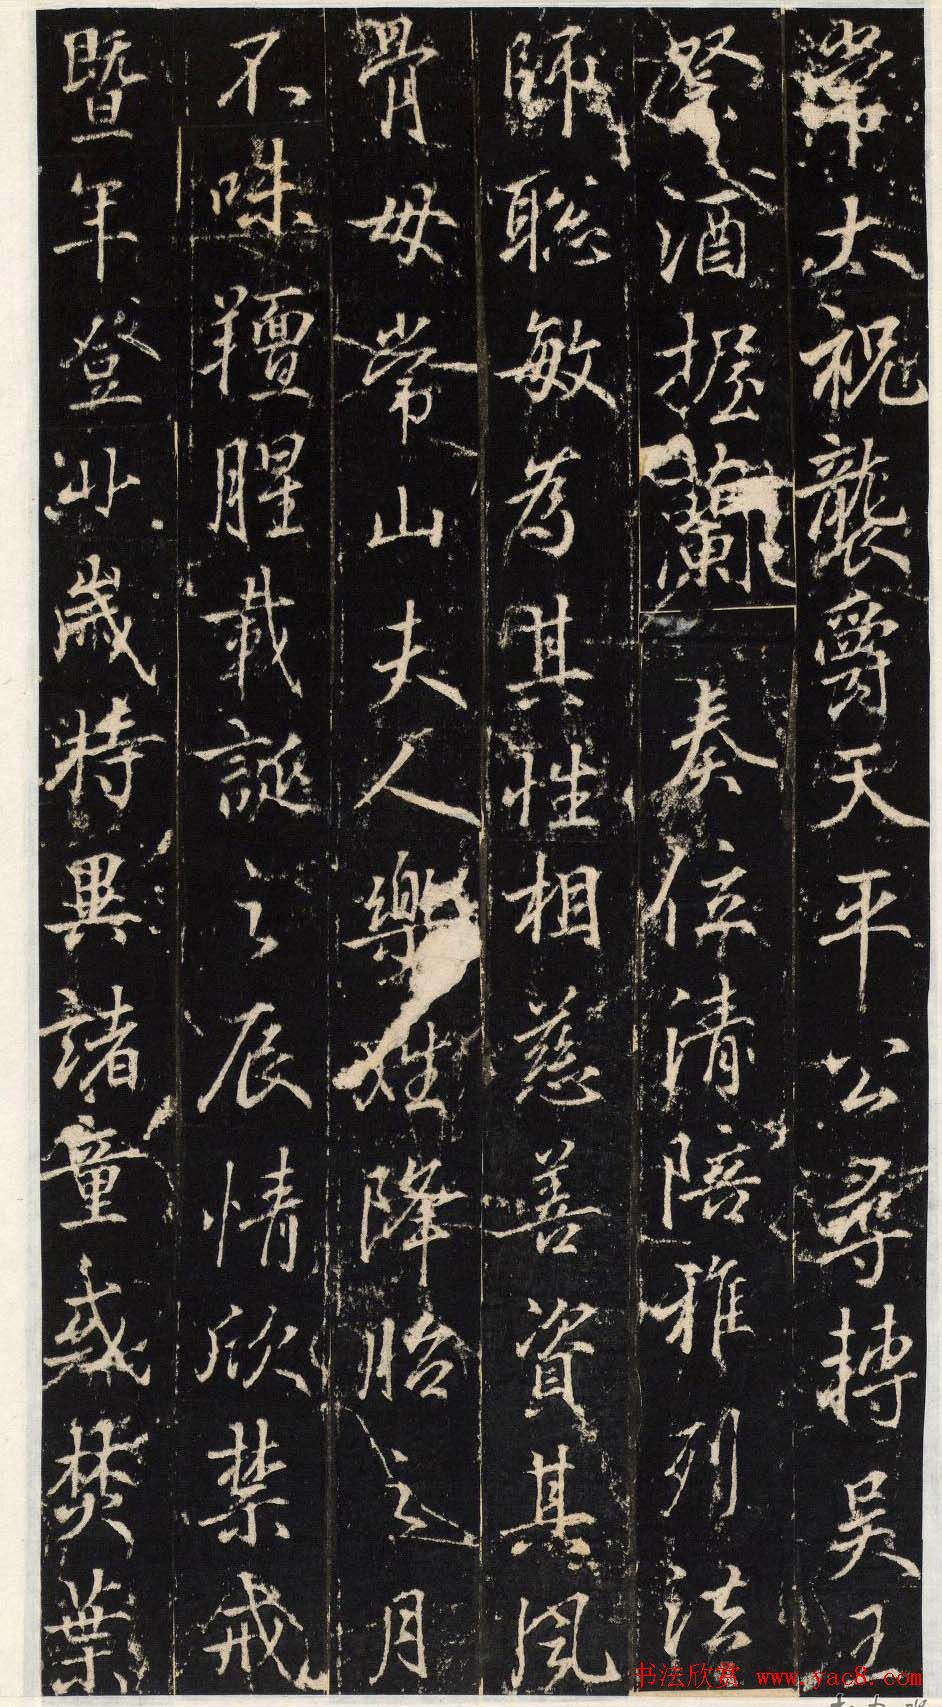 常太祝襲爵天平公尋轉吳王
祭酒握蘭奏位清陪雅列法
師聡敏為其性相慈善資其風
骨母常山夫人樂姓降胎之月
不味羶腥載誕之辰情欣禁戒
暨年登丱歲特異諸童或焚葉
书法欣赏 www.yac8.com